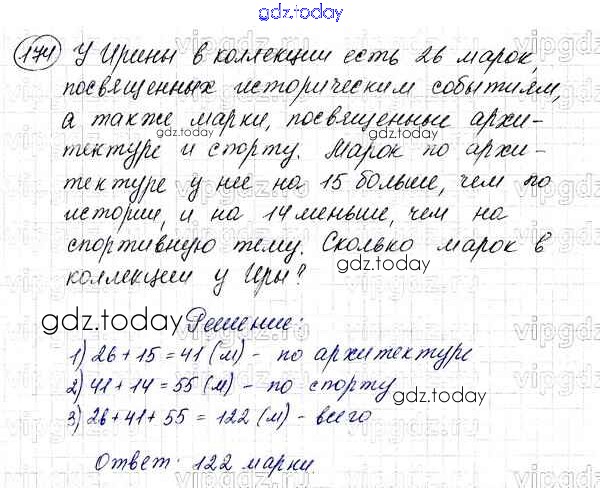 gdz.today
174 У Ирины в коллекции есть 26 марок,
посвященных историческим событиям,
а также марки, посвященные архи-
gdz.today
тектуре и спорту. Марок по архи-
тектуре у нее на 15 больше, чем по
истории, и на 14 меньше, чем на
спортивную тему. Сколько марок в
gdz.today
коллекции у Иры?
gdz.today
Решение:
1) 26 + 15 = 41 (м) - по архитектуре
2) 41 + 14 = 55 (м) - по спорту
gdz.today
3) 26 + 41 + 55 = 122 (м) - всего
Ответ: 122 марки.